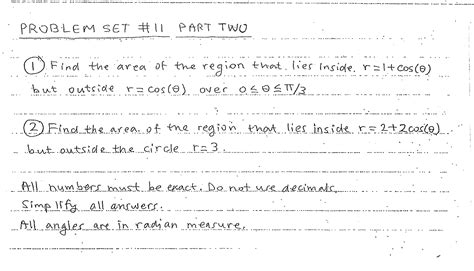 PROBLEM SET #11 PART TWO
① Find the area of the region that lies inside r=1+cos(θ)
but outside r=cos(θ) over 0≤θ≤π/3
② Find the area of the region that lies inside r=2+2cos(θ)
but outside the circle r=3.
All numbers must be exact. Do not use decimals.
Simplify all answers.
All angles are in radian measure.